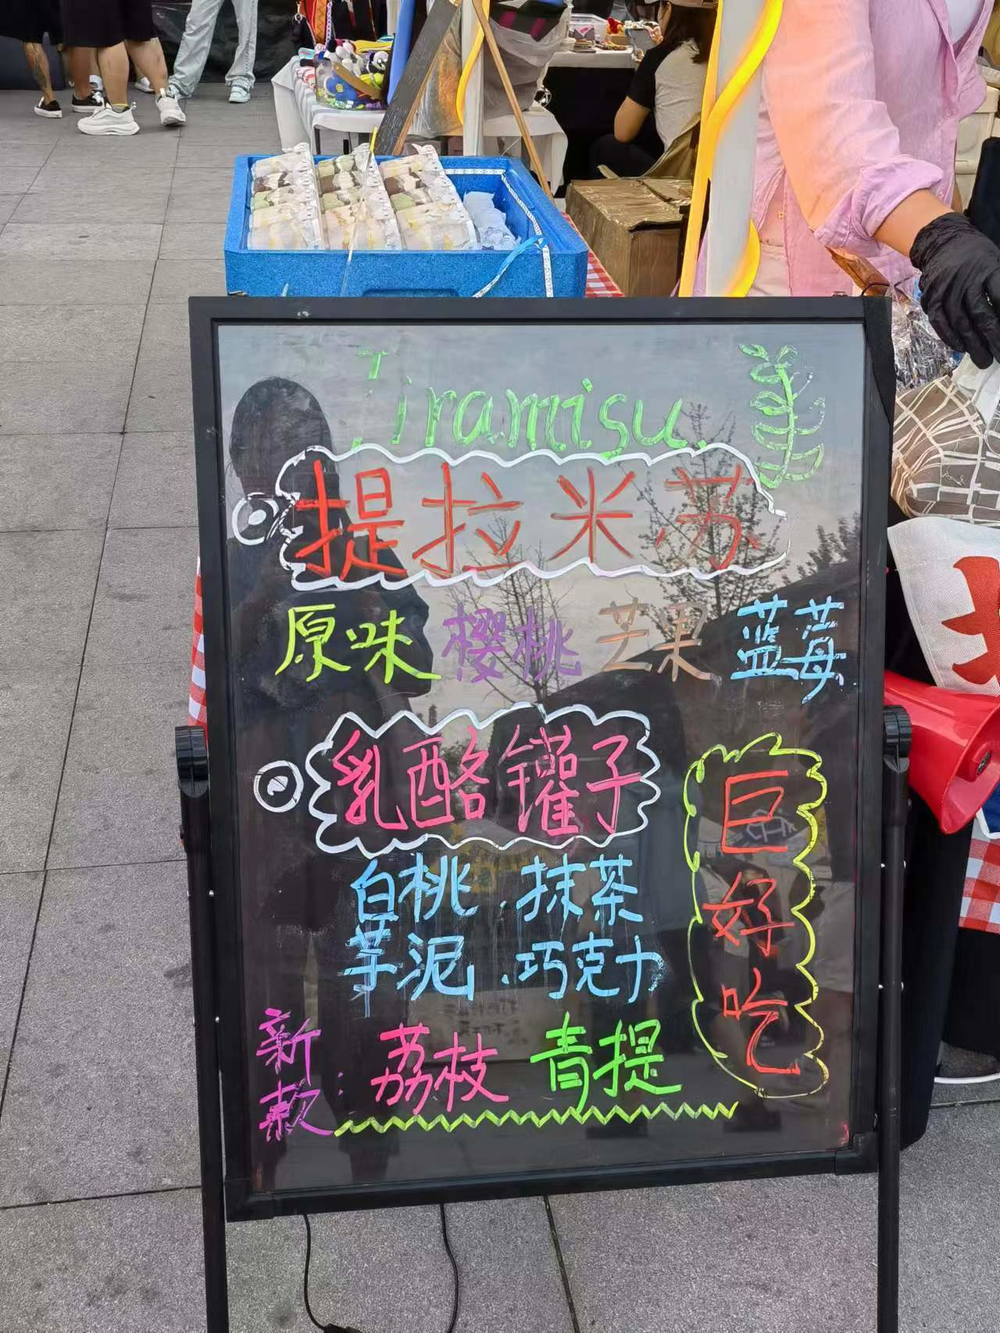 Tiramisu
提拉米苏
原味 樱桃 芒果 蓝莓
乳酪罐子
白桃 . 抹茶
芋泥 . 巧克力
巨好吃
新款: 荔枝 青提